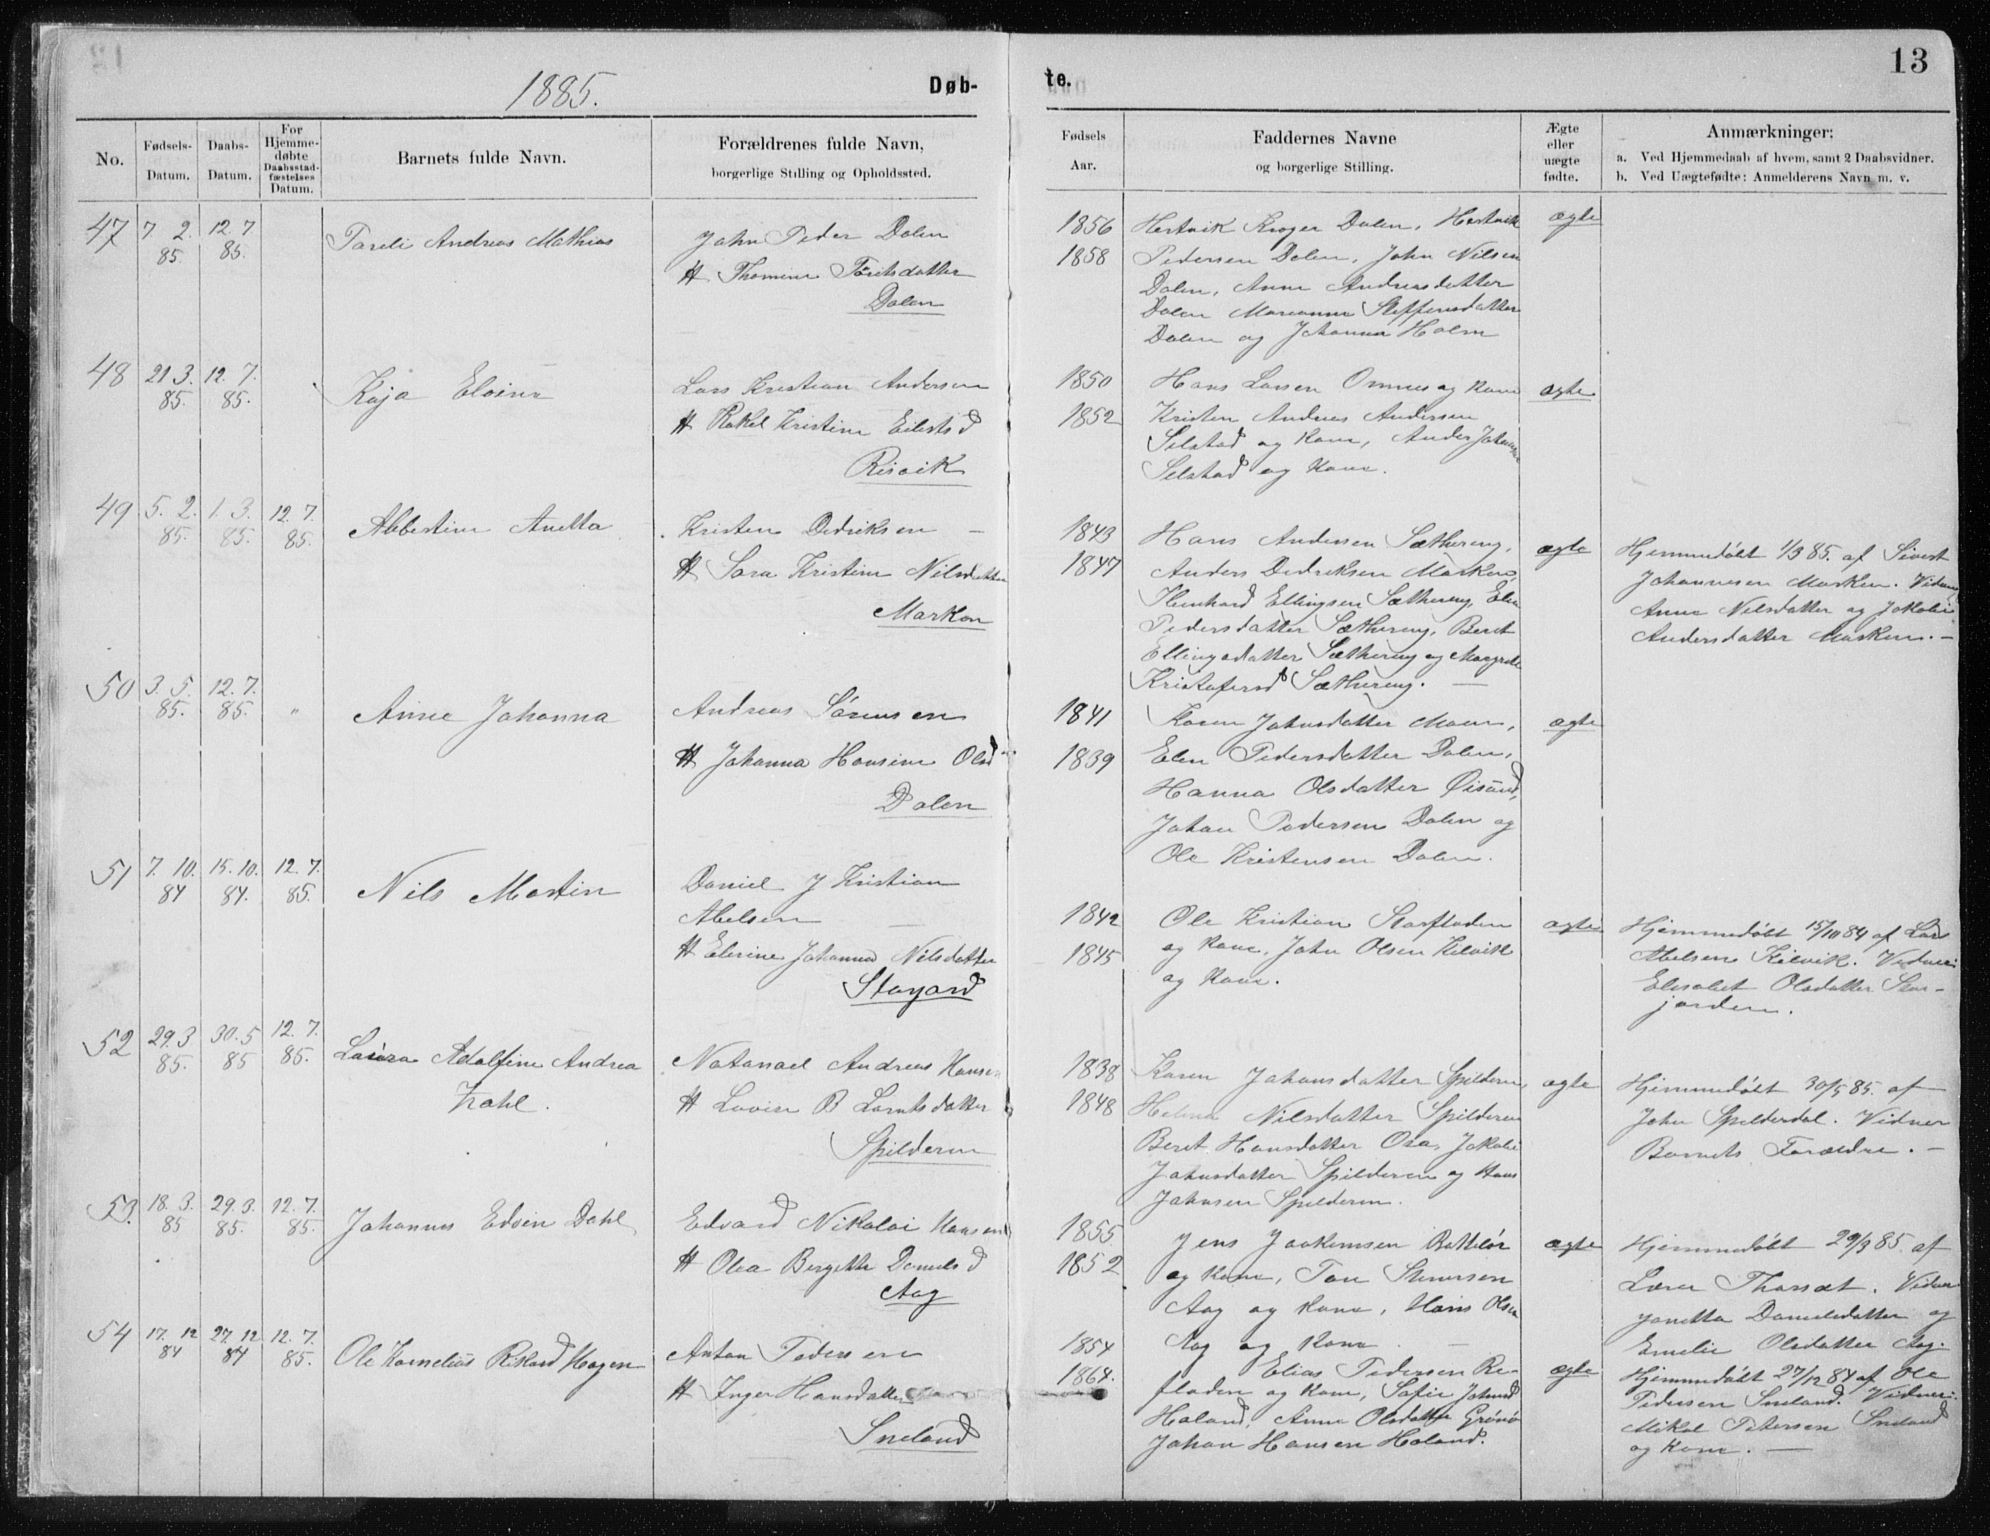 13
1885.
Døb-
te.
No.
Fødsels-
Datum.
Daabs-
Datum.
For
Hjemme-
døbte
Daabsstad-
fæstelses
Datum.
Barnets fulde Navn.
Forældrenes fulde Navn,
borgerlige Stilling og Opholdssted.
Fødsels
Aar.
Faddernes Navne
og borgerlige Stilling.
Ægte
eller
uægte
fødte.
Anmærkninger:
a. Ved Hjemmedaab af hvem, samt 2 Daabsvidner.
b. Ved Uægtefødte: Anmelderens Navn m. v.
47
7. 2.
85.
12. 7
85.
Andreas Mathias
John Peder Dalen
H Thomine
Dalen
1856
1858
Hertvik Kroger Dalen, Hertvik
Pedersen Dalen, John Nilsen
Dalen, Anne Andreasdatter
Dalen Marianna Steffensdatter
Dalen og Johanna Holm
ægte
48
21 3.
85.
12. 7.
85.
Kaja
Lars Kristian Andersen
H Rakel Kristine Eilertsd
Risvik
1850
1852
Hans Larsen Omnes og Kone
Kristen Andreas Andersen
Selstad og Kone, Anders
Selstad og Kone.
ægte
49
5. 2.
85.
1. 3.
85.
12. 7.
85.
Albertine Anetta
Kristen Dedriksen —
H Sara Kristine Nilsdatter
Marken
1843
1847
Hans Andersen Sæthereng,
Anders Dedriksen Marken,
Ellingsen Sæthereng,
Pedersdatter Sæthereng, Beret
Ellingsdatter Sæthereng og Margrete
Kristofersd Sæthereng. —
ægte
Hjemmedøbt 1/3 85. af Sivert
Johannesen Marken. Vidner
Anne Nilsdatter og Jakobie
Andersdatter Marken. —
50
3. 5.
85.
12. 7.
85.
"
Anne Johanna
Andreas Sørensen
H Johanna Hansine Olsd
Dalen
1841
1839
Karen Johnsdatter Moen,
Elen Pedersdatter Dalen,
Hanna Olsdatter Øisund,
Johan Pedersen Dalen og
Ole Kristensen Dalen.
ægte
51
7. 10.
84
15. 10.
84.
12. 7.
85.
Nils Martin
Daniel J Kristian
Abelsen
H Elerine Johanna Nilsdatter
1842
1845
Ole Kristian
og Kone, John Olsen Kilvik
og Kone.
ægte
Hjemmedøbt 15/10 84 af Lars
Abelsen Kilvik. Vidner:
Elisabet Olsdatter Stor-
jorden.
52
29. 3
85.
30. 5
85
12. 7.
85.
Laura Adolfine Andrea
Zahl.
Natanael Andreas Hansen
H Lovise B Lorntsdatter
Spilderen
1838
1848
Karen Johansdatter Spilderen,
Helena Nilsdatter Spilderen
Beret Hansdatter Osa, Jakobie
Johnsdatter Spilderen og Hans
Johnsen Spilderen.
ægte
Hjemmedøbt 30/5 85. af
John Spilderdal. Vidner
Barnets Forældre. —
53.
18. 3.
85
29. 3.
85.
12. 7.
85.
Johannes Edvin Dahl
Edvard Nikolai Hansen
H Olea Bergitte Daniels d
Aag
1855
1852
Jens Joakimsen
og Kone, Tore Steensen
Aag og Kone, Hans Olsen
Aag og Kone —
ægte
Hjemmedøbt 29/3 85. af
Lærer. Vidner
Janetta Danielsdatter og
Emelie Olsdatter Aag.
54
17. 12
84
27. 12
84
12. 7.
85.
Ole Kornelius Hagen
Anton Pedersen
H Inger Hansdatter
Sneland
1854
1864.
Elias Pedersen Re-
fladen og Kone, Sofie
Haland, Anne Olsdatter Grønø
Johan Hansen Haland.
ægte
Hjemmedøbt 27/12 84 af Ole
Pedersen Sneland. Vidner:
Mikal Petersen Sneland
og Kone. —